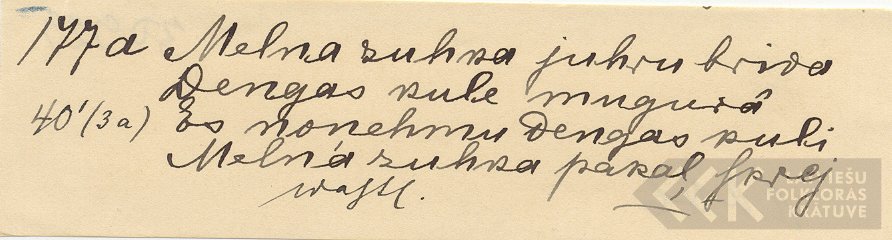 177a Melna zuhka juhru brida
Dengas kule mugurâ
40'(3a) Es nonehmu Dengas kuli
Melna zuhka pakaļ skrej
LATVIEŠU
FOLKLORAS
KRĀTUVE